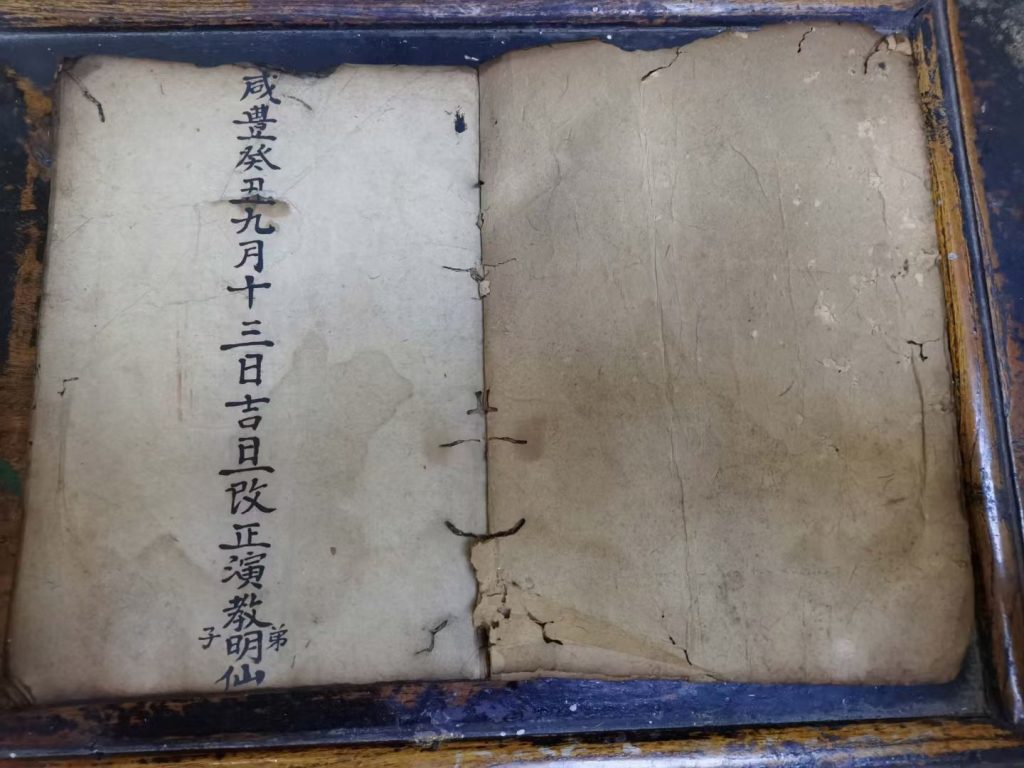 咸豊癸丑九月十三日吉旦改正演教弟子明仙